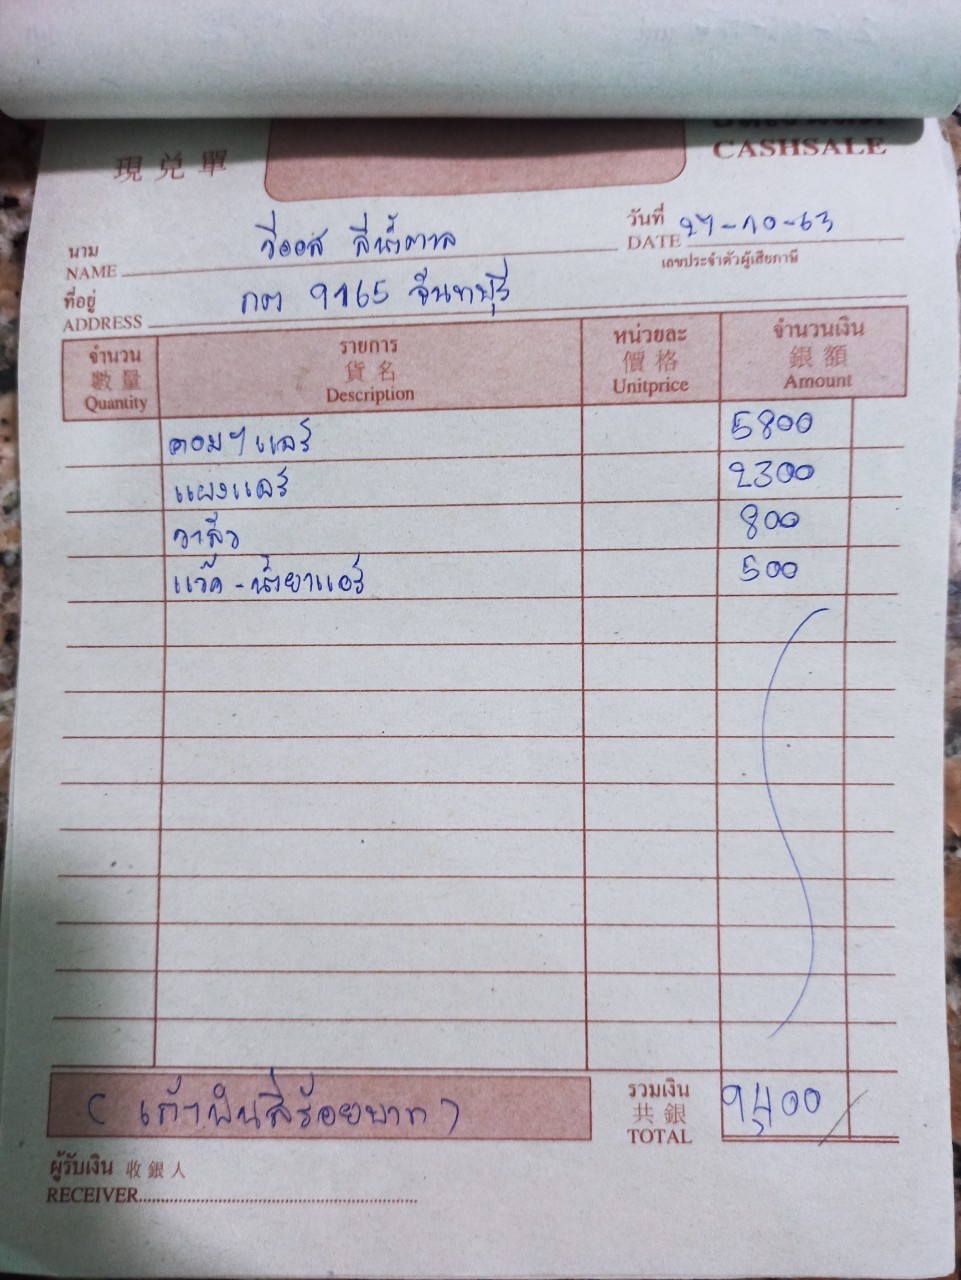 現 兌 單
CASHSALE
นาม
NAME
วีออส สีน้ำตาล
วันที่
DATE 27-10-63
เลขประจำตัวผู้เสียภาษี
ที่อยู่
ADDRESS
กต 9165 จันทบุรี
จำนวน
數 量
Quantity
รายการ
貨 名
Description
หน่วยละ
價 格
Unitprice
จำนวนเงิน
銀 額
Amount
คอมฯแอร์ 5800
แผงแอร์ 2300
วาล์ว 800
แว๊ค - น้ำยาแอร์ 500
(เก้าพันสี่ร้อยบาท)
รวมเงิน
共 銀
TOTAL
9,400
ผู้รับเงิน 收 銀 人
RECEIVER